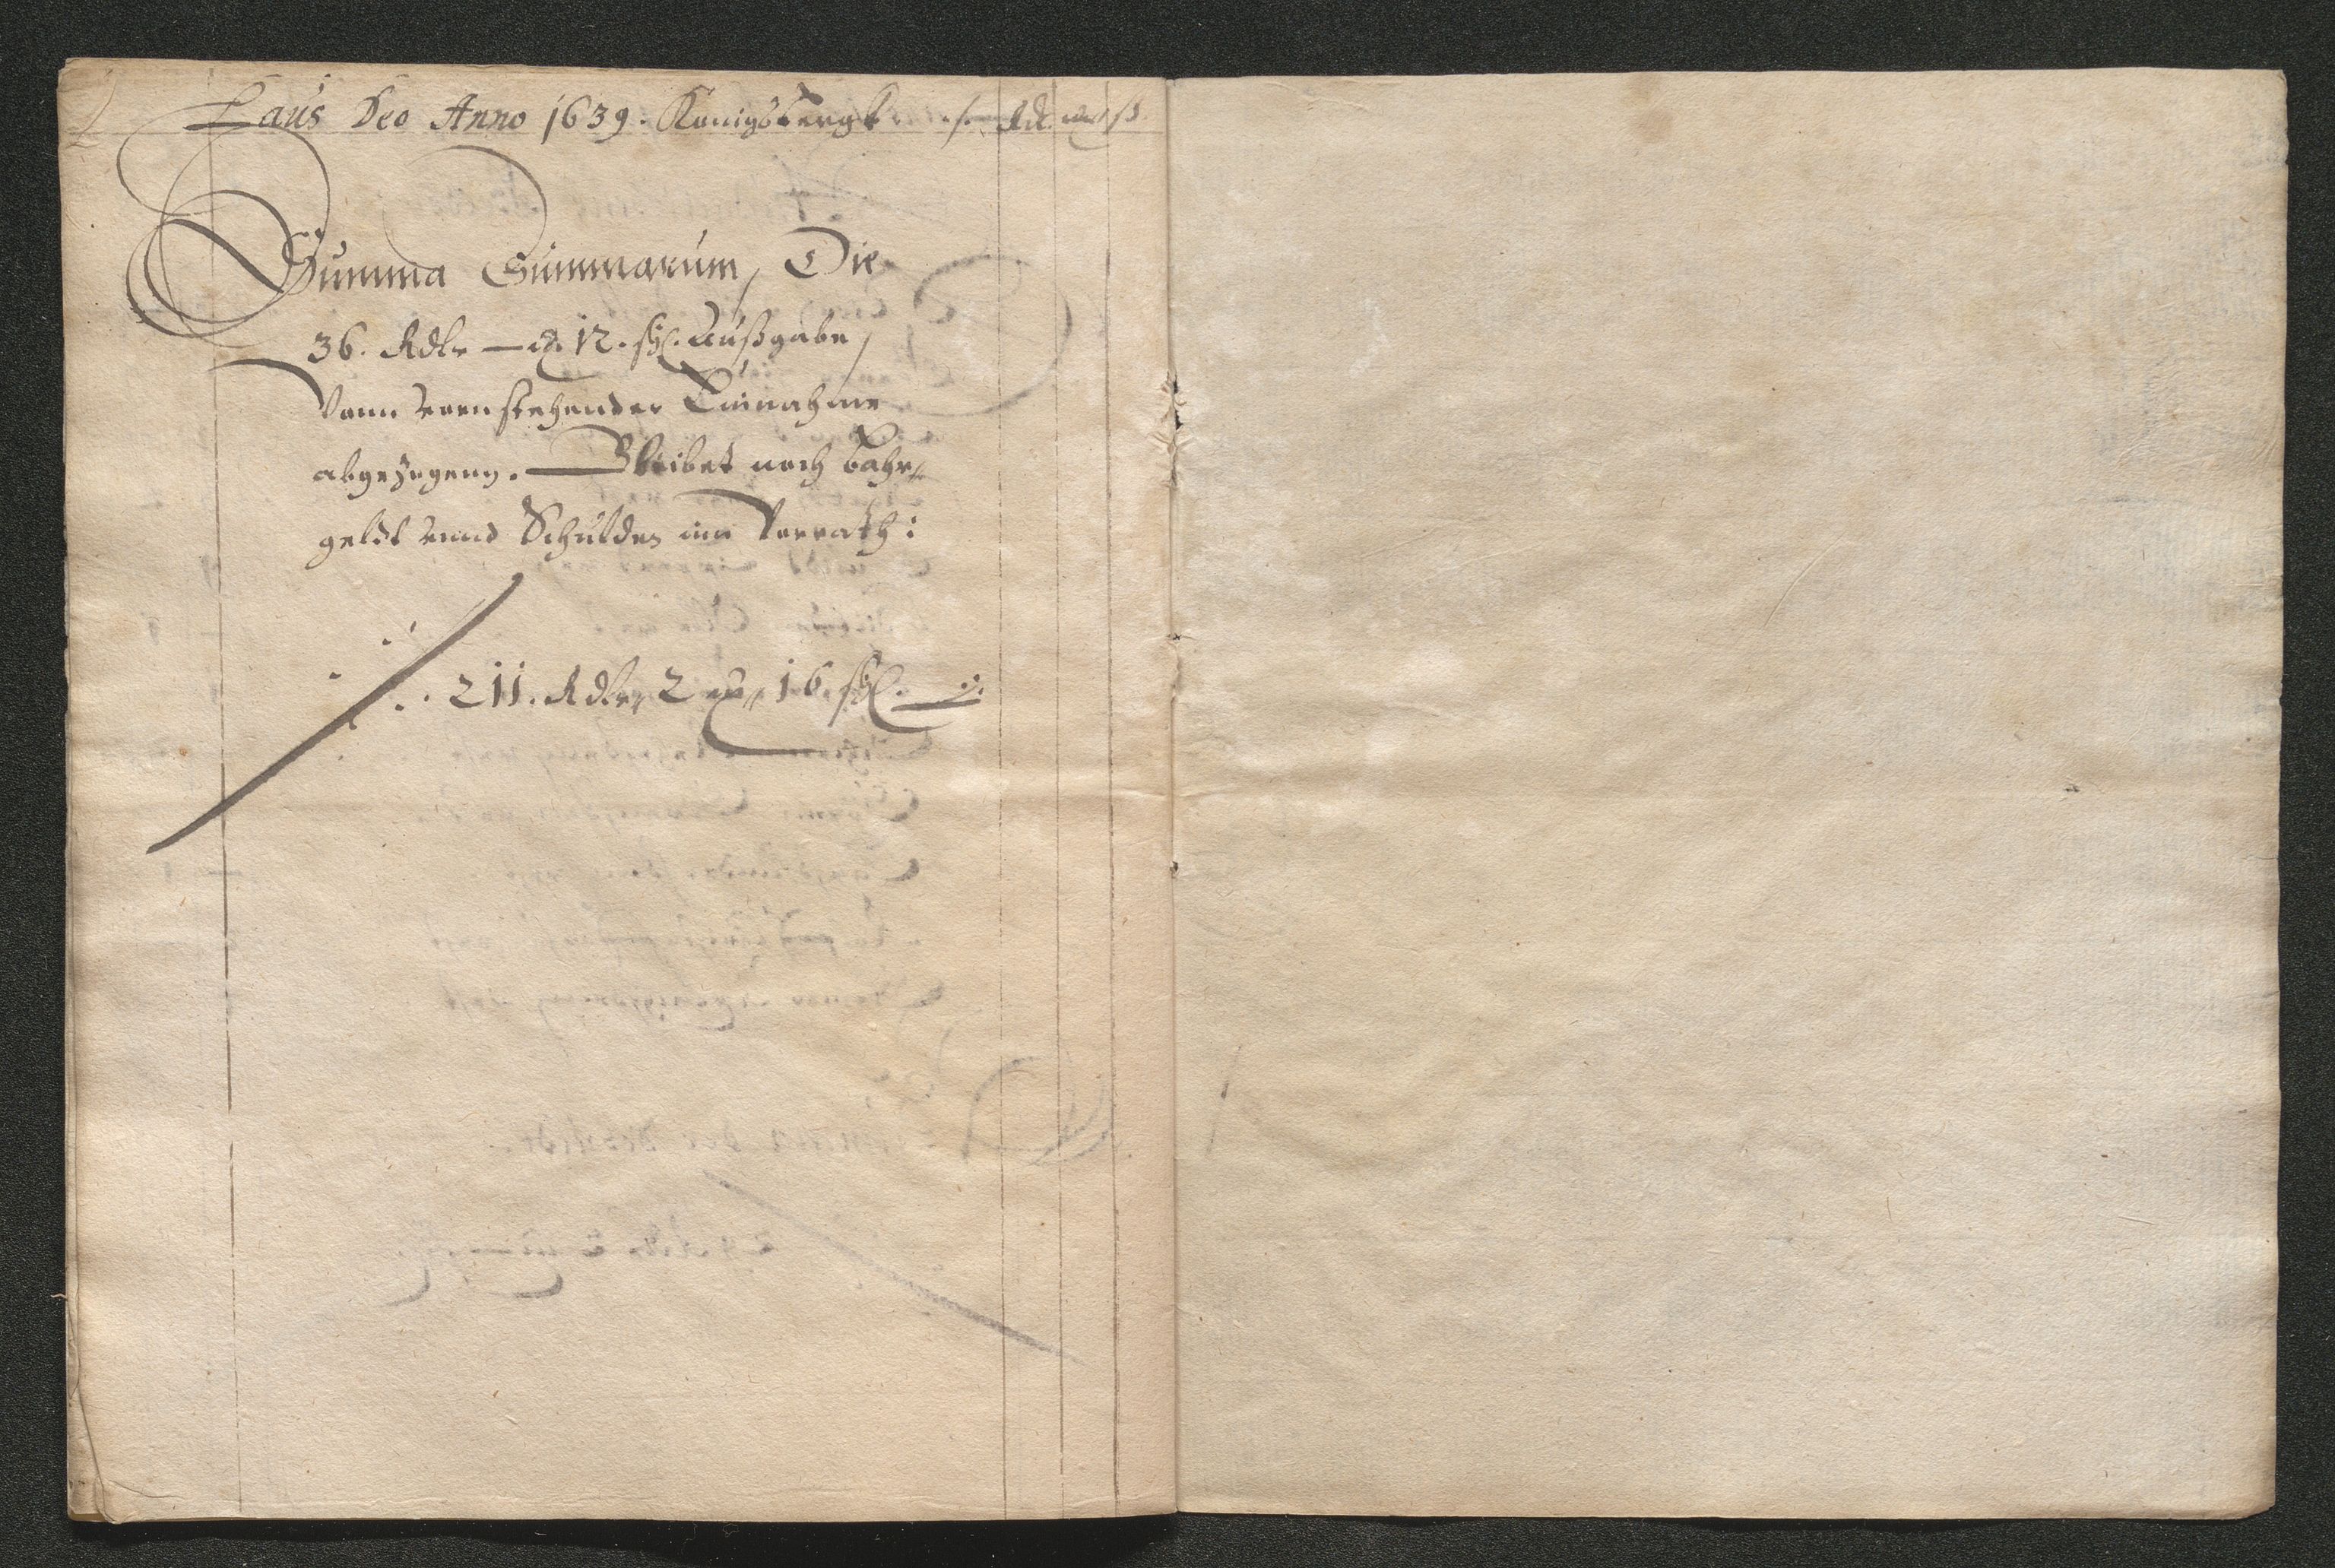 Laus Deo Anno 1639. Königsbergk ./. Rdt. mk ß
Summa Summarum, Die
36. Rdlr — mk 12. ßl. Außgabe,
Vonn vornstehender Einnahme
abgezogenn. Bleibet noch bahr,,
geldt vnnd Schulden inn Vorrath:
211. Rdlr,, 2 mk,, 16. ßl.